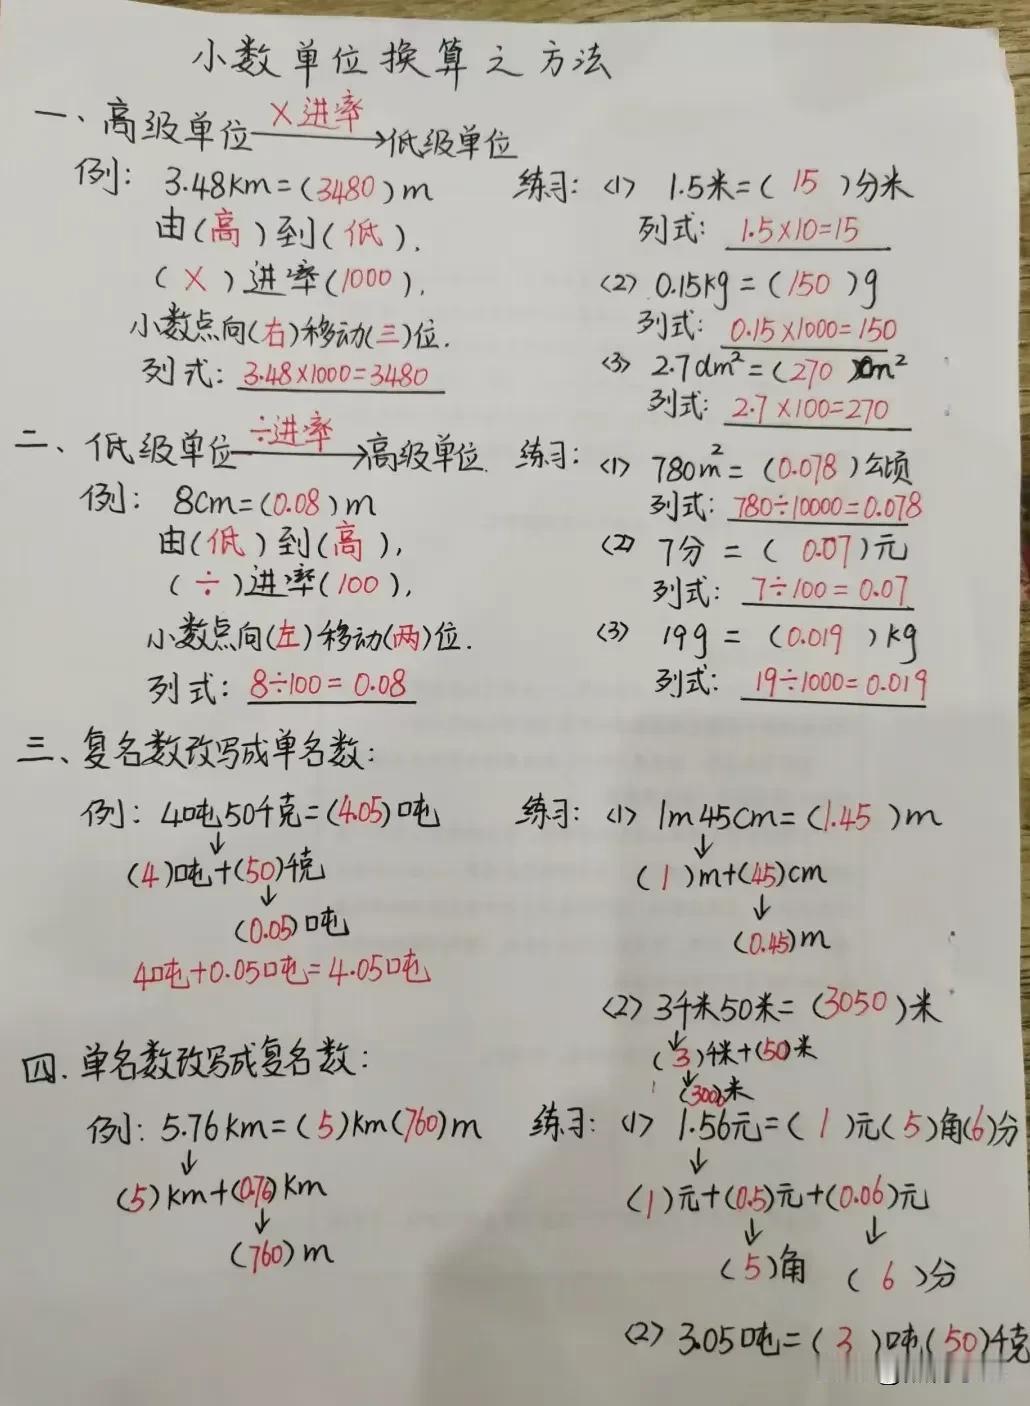 小数单位换算之方法
一、高级单位 ×进率 低级单位
例: 3.48km=(3480)m
由(高)到(低),
(×)进率(1000),
小数点向(右)移动(三)位.
列式: 3.48×1000=3480
练习: <1> 1.5米=(15)分米
列式: 1.5×10=15
<2> 0.15kg=(150)g
列式: 0.15×1000=150
<3> 2.7dm²=(270)cm²
列式: 2.7×100=270
二、低级单位 ÷进率 高级单位.
例: 8cm=(0.08)m
由(低)到(高),
(÷)进率(100),
小数点向(左)移动(两)位.
列式: 8÷100=0.08
练习: <1> 780m²=(0.078)公顷
列式: 780÷10000=0.078
<2> 7分=(0.07)元
列式: 7÷100=0.07
<3> 19g=(0.019)kg
列式: 19÷1000=0.019
三、复名数改写成单名数:
例: 4吨50千克=(4.05)吨
(4)吨+(50)千克
(0.05)吨
4吨+0.05吨=4.05吨
练习: <1> 1m45cm=(1.45)m
(1)m+(45)cm
(0.45)m
<2> 3千米50米=(3050)米
(3)千米+(50)米
(3000)米
四. 单名数改写成复名数:
例: 5.76km=(5)km(760)m
(5)km+(0.76)km
(760)m
练习: <1> 1.56元=(1)元(5)角(6)分
(1)元+(0.5)元+(0.06)元
(5)角 (6)分
<2> 3.05吨=(3)吨(50)千克